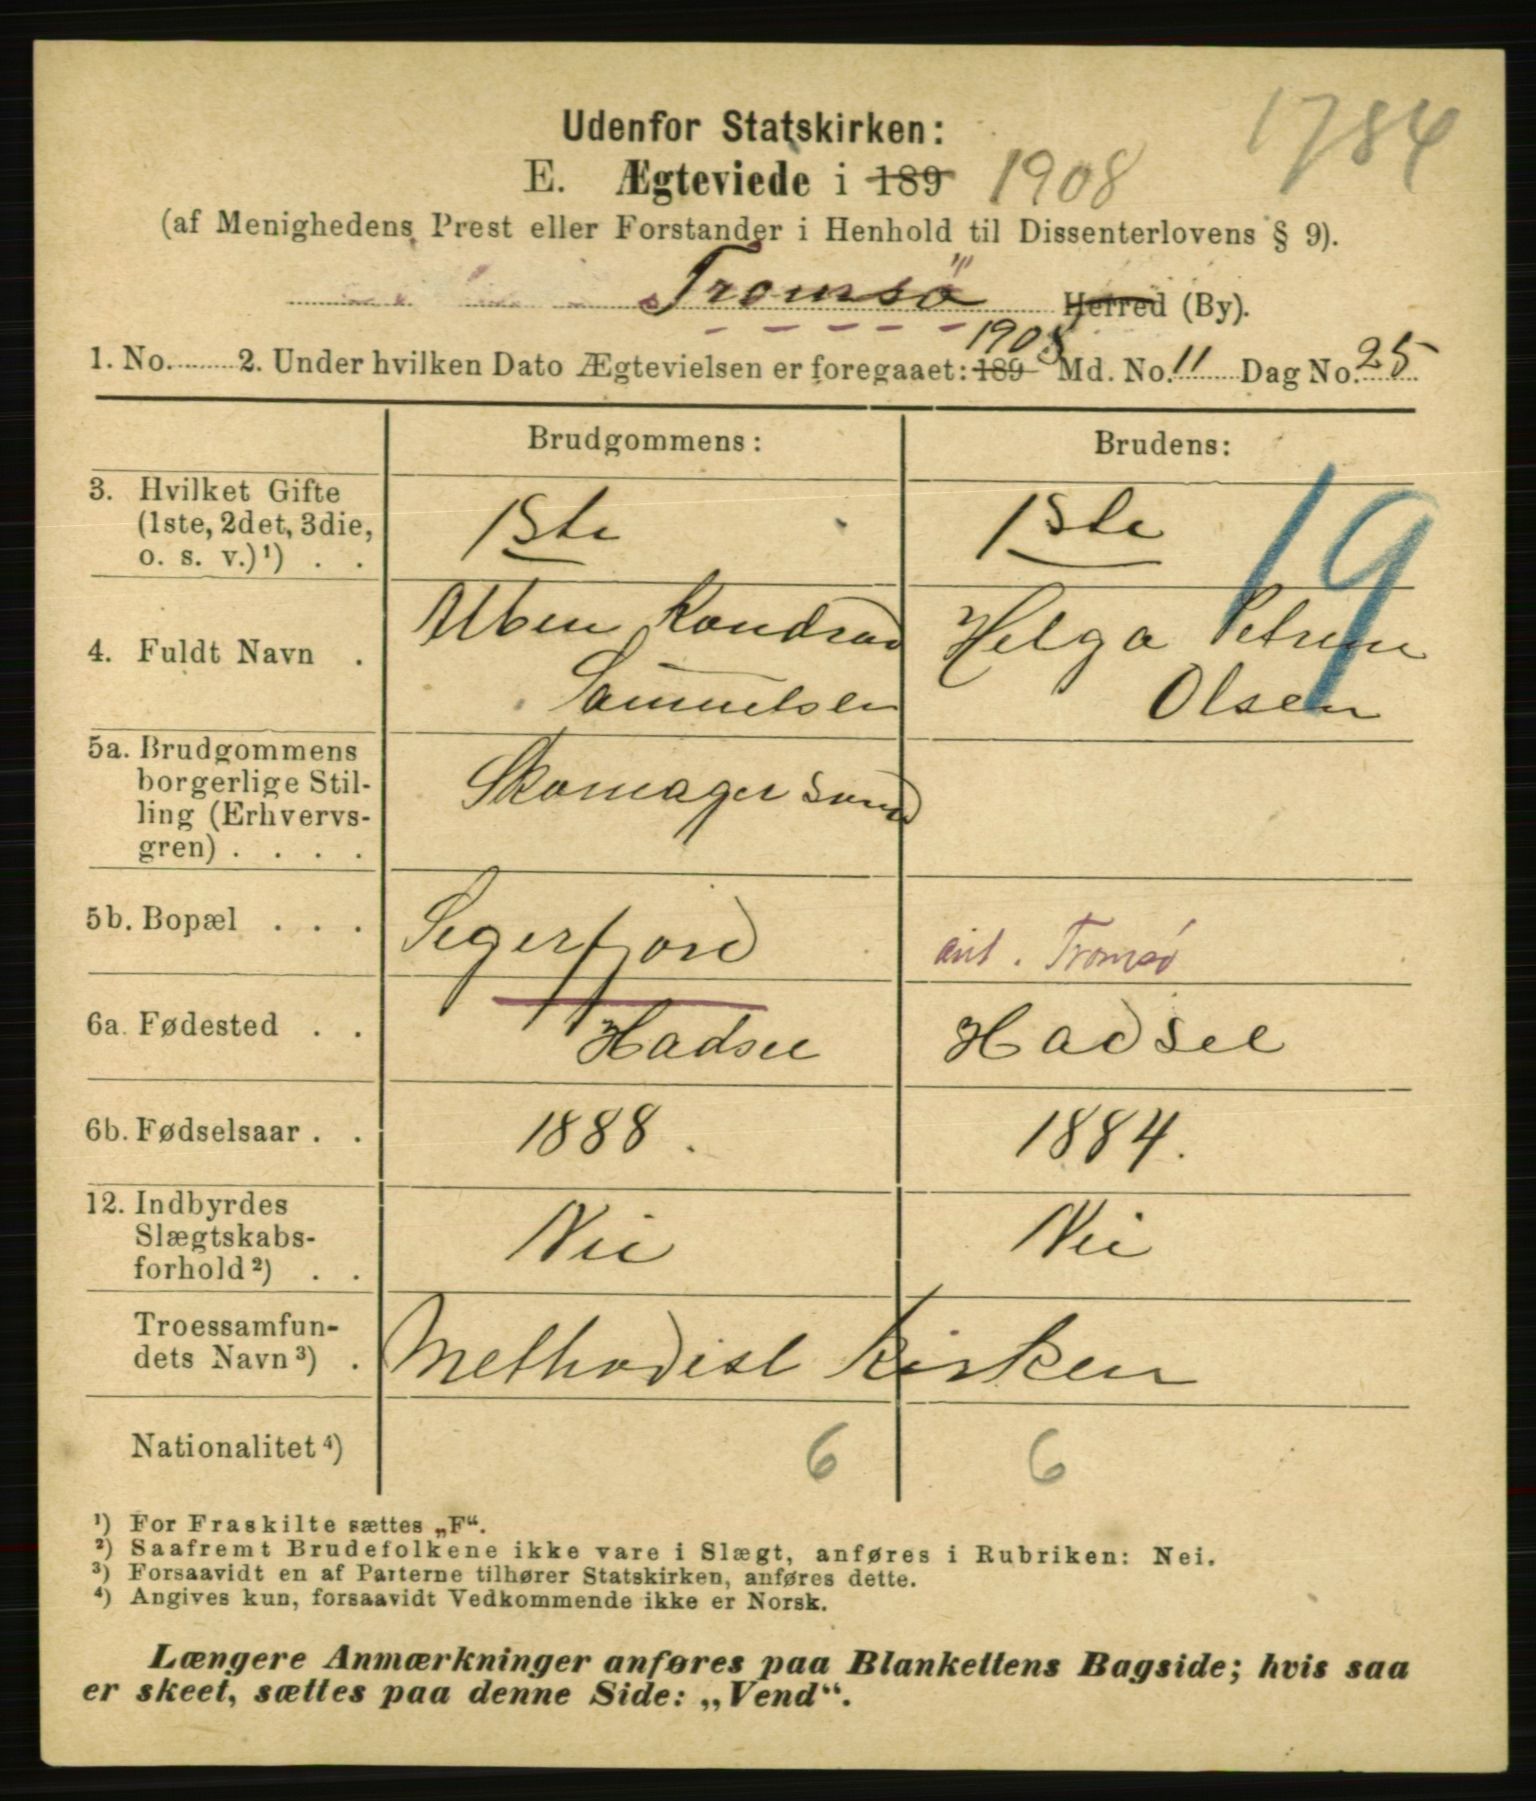 1784
Udenfor Statskirken:
E. Ægteviede i 189 1908
(af Menighedens Prest eller Forstander i Henhold til Dissenterlovens § 9).
Tromsø Herred (By).
1. No. 2. Under hvilken Dato Ægtevielsen er foregaaet: 189 1908 Md. No. 11 Dag No. 25
Brudgommens: Brudens:
3. Hvilket Gifte
(1ste, 2det, 3die,
o. s. v.)¹) . . 1ste 1ste
19
4. Fuldt Navn . Alben Kondrad Helga Petrine
Samuelsen Olsen
5a. Brudgommens
borgerlige Stil-
ling (Erhvervs-
gren) . . . . Skomager svend
5b. Bopæl . . . Segerfjord ant. Tromsø
6a. Fødested . . Hadsel Hadsel
6b. Fødselsaar . . 1888. 1884.
12. Indbyrdes
Slægtskabs-
forhold²) . . Nei Nei
Troessamfun-
dets Navn³) . Methodist Kirken
Nationalitet⁴) 6 6
¹) For Fraskilte sættes „F“.
²) Saafremt Brudefolkene ikke vare i Slægt, anføres i Rubriken: Nei.
³) Forsaavidt en af Parterne tilhører Statskirken, anføres dette.
⁴) Angives kun, forsaavidt Vedkommende ikke er Norsk.
Længere Anmærkninger anføres paa Blankettens Bagside; hvis saa
er skeet, sættes paa denne Side: „Vend“.